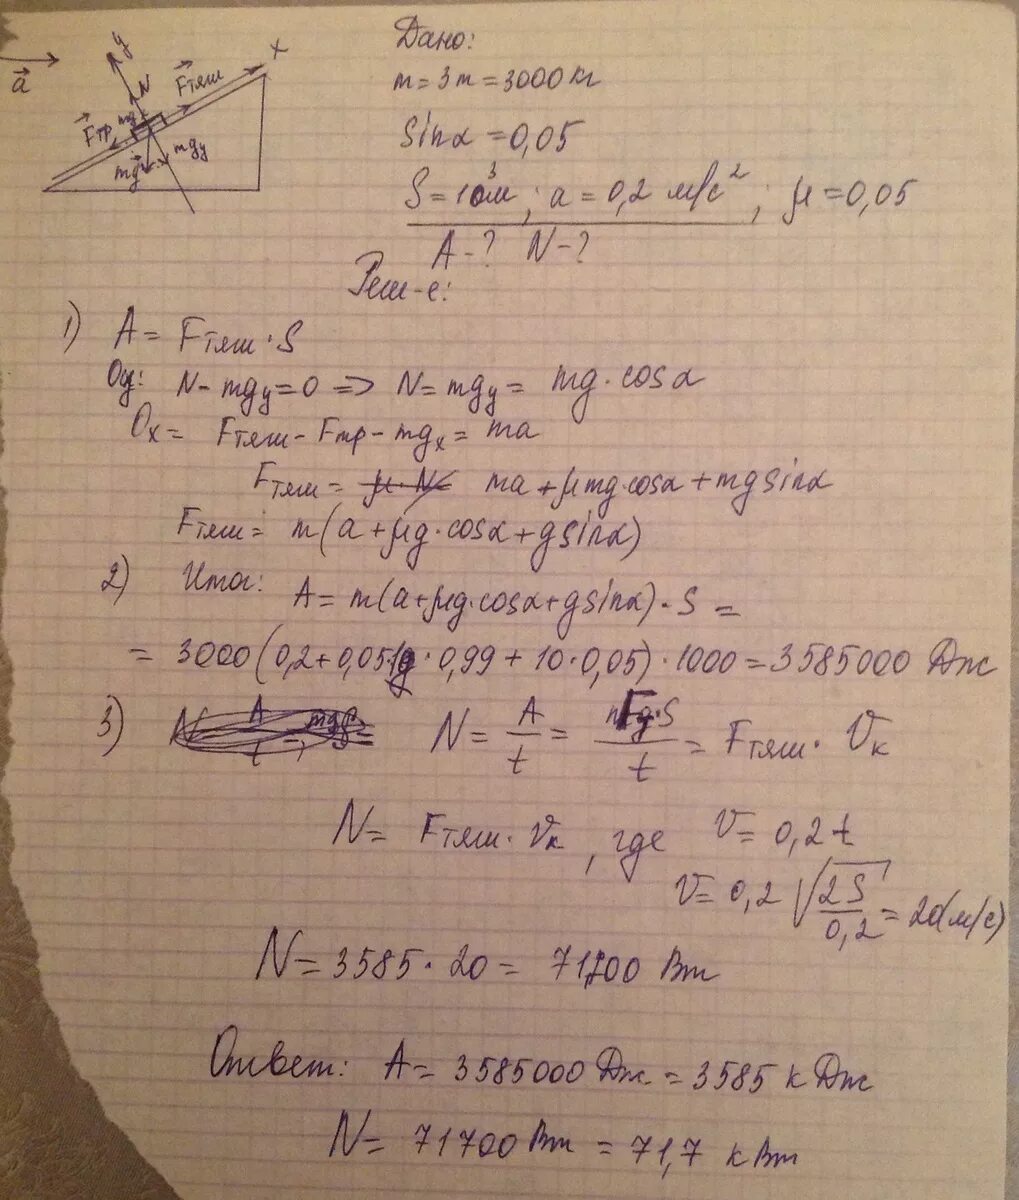 y
x
a
N
Fтяш
Fтр
mg
mgy
Дано:
m = 3т = 3000 кг
Sinα = 0,05
S = 10³м ; a = 0,2 м/с² ; μ = 0,05
A - ? N - ?
Реш-е:
1) A = Fтяш · S
Oy: N - mgy = 0 => N = mgy = mg · cosα
Ox = Fтяш - Fтр - mgx = ma
Fтяш = μ·N ma + μmg·cosα + mg sinα
Fтяш = m(a + μg·cosα + g sinα)
2) Итог: A = m(a + μg·cosα + g sinα) · S =
= 3000 (0,2 + 0,05·10·0,99 + 10·0,05) · 1000 = 3585000 Дж
3) N A/t N = A/t = Fg·S/t = Fтяш · Vк
N = Fтяш · Vк , где V = 0,2 t
V = 0,2 √(2S/0,2) = 20(м/с)
N = 3585 · 20 = 71700 Вт
Ответ: A = 3585000 Дж = 3585 кДж
N = 71700 Вт = 71,7 кВт